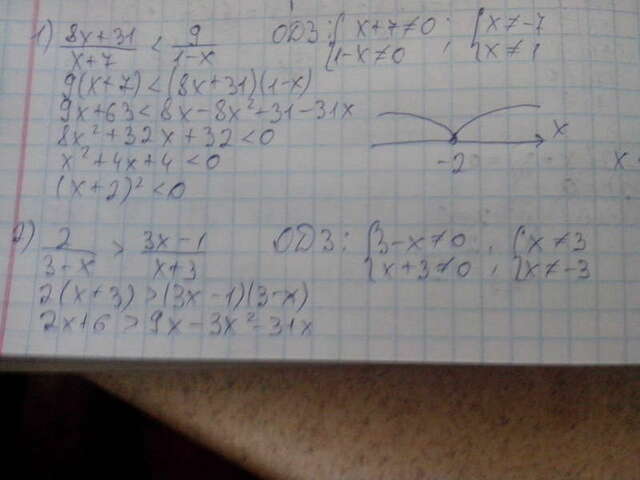 1) (8x+31)/(x+7) < 9/(1-x) ОДЗ: { x+7≠0 ; { x≠-7
{ 1-x≠0 , { x≠1
9(x+7) < (8x+31)(1-x)
9x+63 < 8x-8x²+31-31x
8x²+32x+32<0
x²+4x+4<0
(x+2)²<0
x
-2
x
2) 2/(3-x) > (3x-1)/(x+3) ОДЗ: { 3-x≠0 , { x≠3
{ x+3≠0 , { x≠-3
2(x+3) > (3x-1)(3-x)
2x+6 > 9x-3x²-3+x